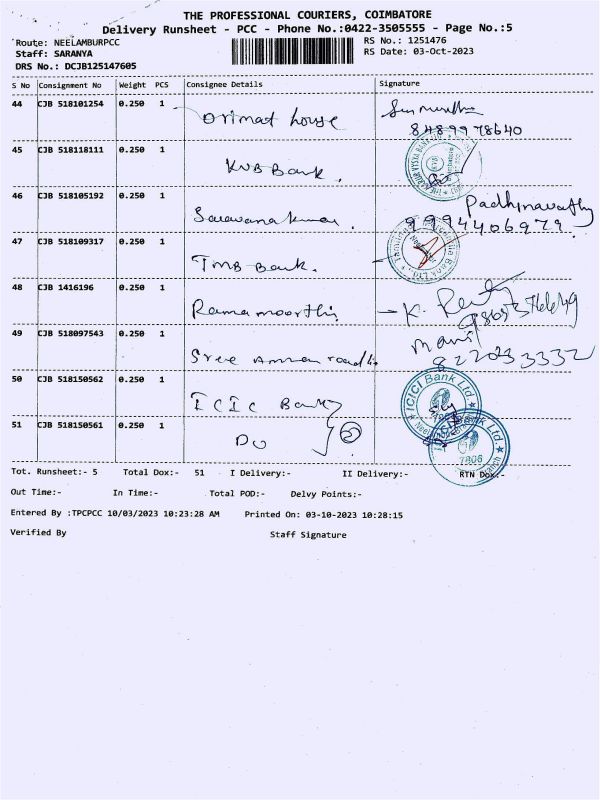 THE PROFESSIONAL COURIERS, COIMBATORE
Delivery Runsheet - PCC - Phone No.:0422-3505555 - Page No.:5
Route: NEELAMBURPCC RS No.: 1251476
Staff: SARANYA RS Date: 03-Oct-2023
DRS No.: DCJB125147605
S No Consignment No Weight PCS Consignee Details Signature
44 CJB 518101254 0.250 1 house
8489978640
45 CJB 518118111 0.250 1 KVB Bank.
46 CJB 518105192 0.250 1 Saravanakumar. Padhmavathy
9994406979.
47 CJB 518109317 0.250 1 TMB Bank.
48 CJB 1416196 0.250 1 Ramamoorthi K.
49 CJB 518097543 0.250 1 Sree Amman Mani
8220233332
50 CJB 518150562 0.250 1 ICIC Bank ICICI Bank Ltd.
51 CJB 518150561 0.250 1 DO 2 Bank Ltd. 7806
Tot. Runsheet:- 5 Total Dox:- 51 I Delivery:- II Delivery:- RTN Dox:-
Out Time:- In Time:- Total POD:- Delvy Points:-
Entered By :TPCPCC 10/03/2023 10:23:28 AM Printed On: 03-10-2023 10:28:15
Verified By Staff Signature